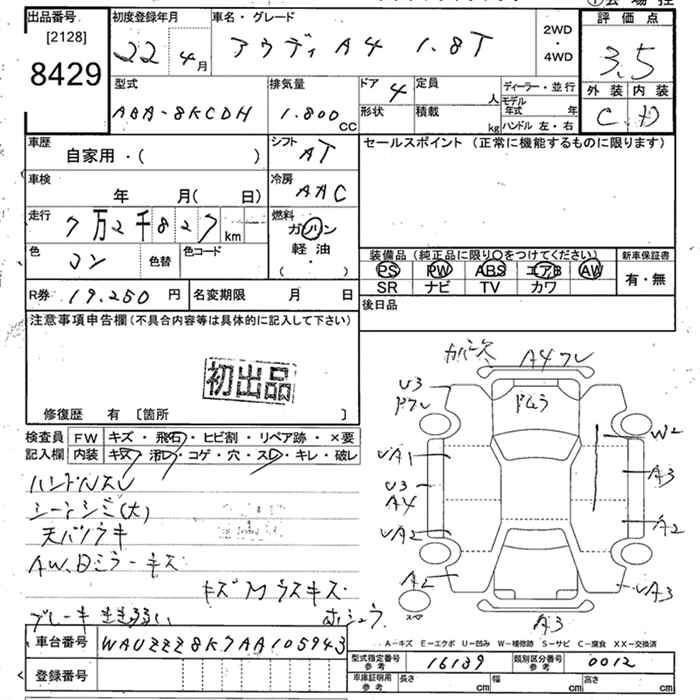 ① 会場控
出品番号 初度登録年月 車名・グレード 2WD ・ 4WD 評価点
[2128]
8429 22年 4月 アウディA4 1.8T 3.5
型式 排気量 ドア 4 定員 人 ディーラー・並行 外装 内装
ABA-8KCDH 1.800 CC 形状 積載 kg モデル年式 年 C D
ハンドル 左・右
車歴 シフト セールスポイント (正常に機能するものに限ります)
自家用・( ) AT
車検 冷房
年 月( 日) AAC
走行 燃料
7万2千827 km ガソリン
色 コン 色替 色コード 軽油
( ・ )
装備品 (純正品に限り〇をつけてください) 新車保証書
PS PW ABS エアB AW 有・無
SR ナビ TV カワ
R券 19.250 円 名変期限 月 日 後日品
注意事項申告欄 (不具合内容等は具体的に記入して下さい)
初出品
修復歴 有 〔箇所 〕
検査員 FW キズ・飛石・ヒビ割・リペア跡・×要
記入欄 内装 キズ・汚レ・コゲ・穴・スレ・キレ・破レ
ハンドルスレ
シートシミ(大)
天バリウキ
AW、日ミラーキズ
キズMウスキズ
ブレーキ
カバー欠 A4フレ
U3
ドフレ
W2
UA1
A3
U3
A4
A2
UA2
A2
UA3
スペア
A3
A-キズ E-エクボ U-凹み W-補修跡 S-サビ C-腐食 XX-交換済
車台番号 WAUZZZ8K7AA105943
型式指定番号 参考 16139 類別区分番号 参考 0012
登録番号
車庫証明用 参考 長さ cm 幅 cm 高さ cm